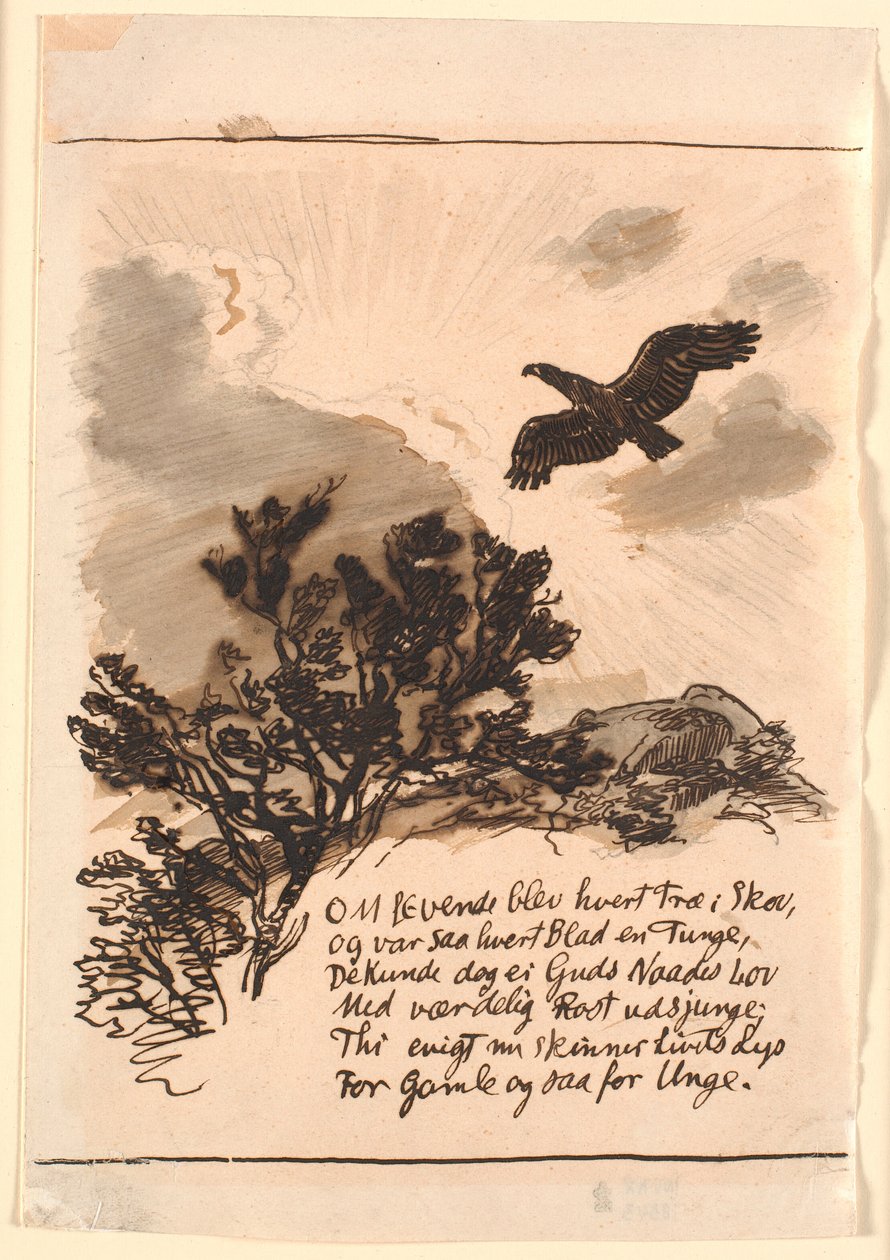 OM levende blev hvert Træ i Skov,
og var saa hvert Blad en Tunge,
De Kunde dog ei Guds Naades Lov
Med værdelig Røst udsjunge;
Thi evigt nu skinner Livets Lys
For Gamle og saa for Unge.